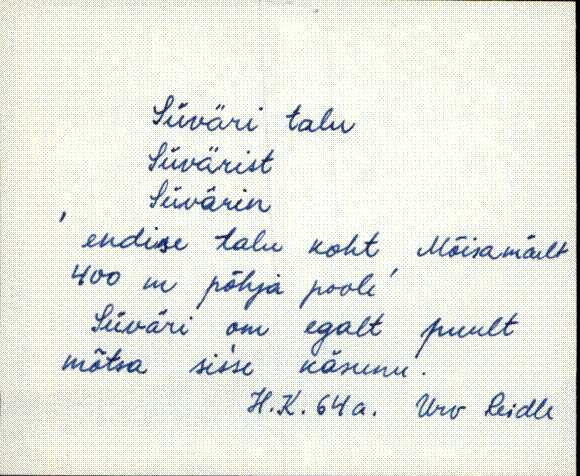 Süväri talu
Süvärist
Süvärin
' endise talu koht Mõisamäelt
400 m põhja pooli'
Süväri om egalt puult
mõtsa sisse käsunu.
H.K. 64 a. Urv Leidle